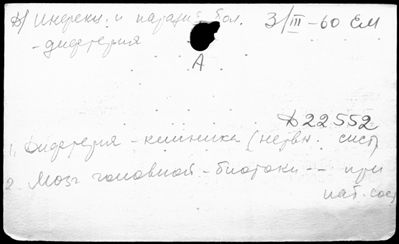 Д) Инфекц. и паразит. бол. 3/III-60 ЕМ
- дифтерия
А
Д 22552
1. Дифтерия - клиника (нервн. сист)
2. Мозг головной - биотоки -- при
пат. сост